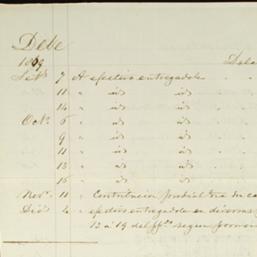 Debe
1869
Setb. 7 A efectivo entregadole
" 11 " id id
" 14 " id id
Octb. 5 " id id
" 9 " id id
" 11 " id id
" 13 " id id
" 15 " id id
Novb. 11 " Contribucion
Dicb. 4 " efectivo entregadole en diversas
12 a 19 del pp. segun